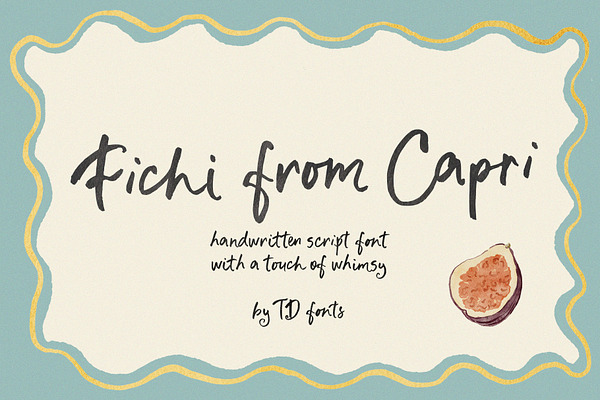 Fichi from Capri
handwritten script font
with a touch of whimsy
by TD fonts